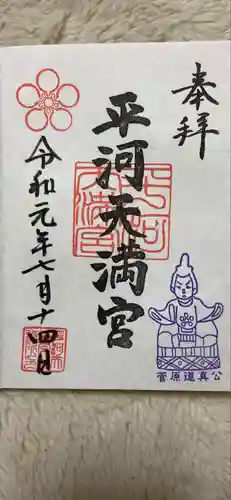 奉拝
平河天満宮
令和元年七月十四日
菅原道真公